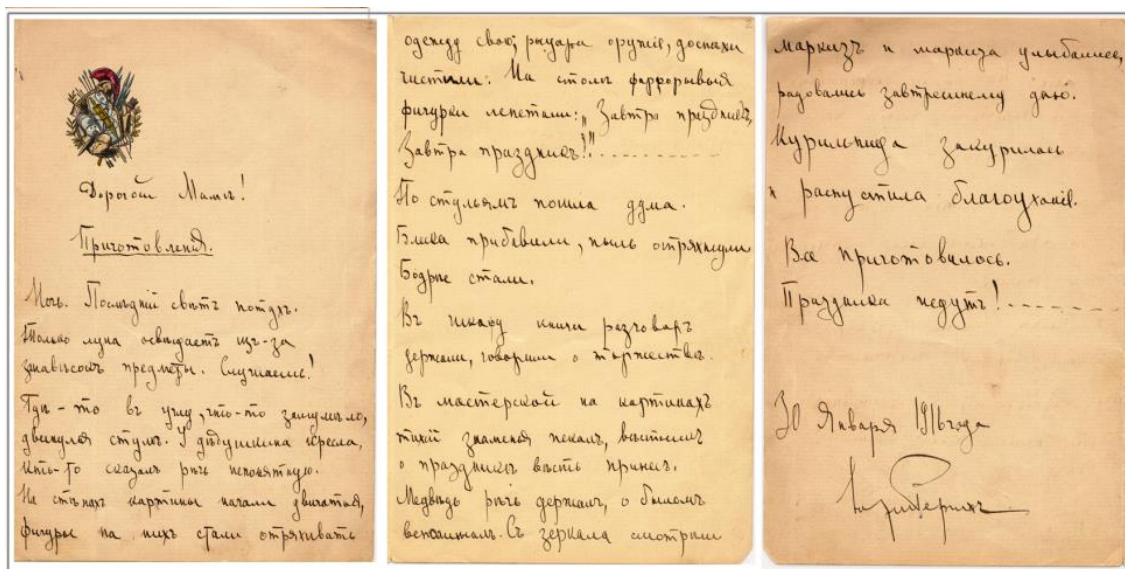 Дорогой Мамѣ!
Приготовленія.
Ночь. Послѣдній свѣтъ потухъ.
Только луна освѣщаетъ изъ-за
занавѣсокъ предметы. Слушаете!
Гдѣ-то въ углу, что-то зашумѣло,
двинулся стулъ. У дѣдушкина кресла,
Кто-то сказалъ рѣчь непонятную.
На стѣнахъ картины начали двигаться,
фигуры на нихъ стали отряхивать
одежду свою, рыцари оружіе, доспѣхи
чистили. На столѣ фарфоровыя
фигурки лепетали: „Завтра праздникъ,
Завтра праздникъ!"
По стульямъ пошла
прибавили, пыль отряхнули
Бодрые стали.
Въ шкафу книги разговаръ
держали, говорили о торжествѣ.
Въ мастерской на картинахъ
тихій искалъ, вѣстникъ
о праздникѣ вѣсть принесъ.
Медвѣдь рѣчь держалъ, о быломъ
вспоминалъ. Съ зеркала смотрѣли
маркизъ и маркиза улыбались,
радовались завтрешнему дню.
Курильница закурилась
и распустила благоуханіе.
Все приготовилось.
Праздника ждутъ!
30 Января 1916 года
Юрій Рерихъ